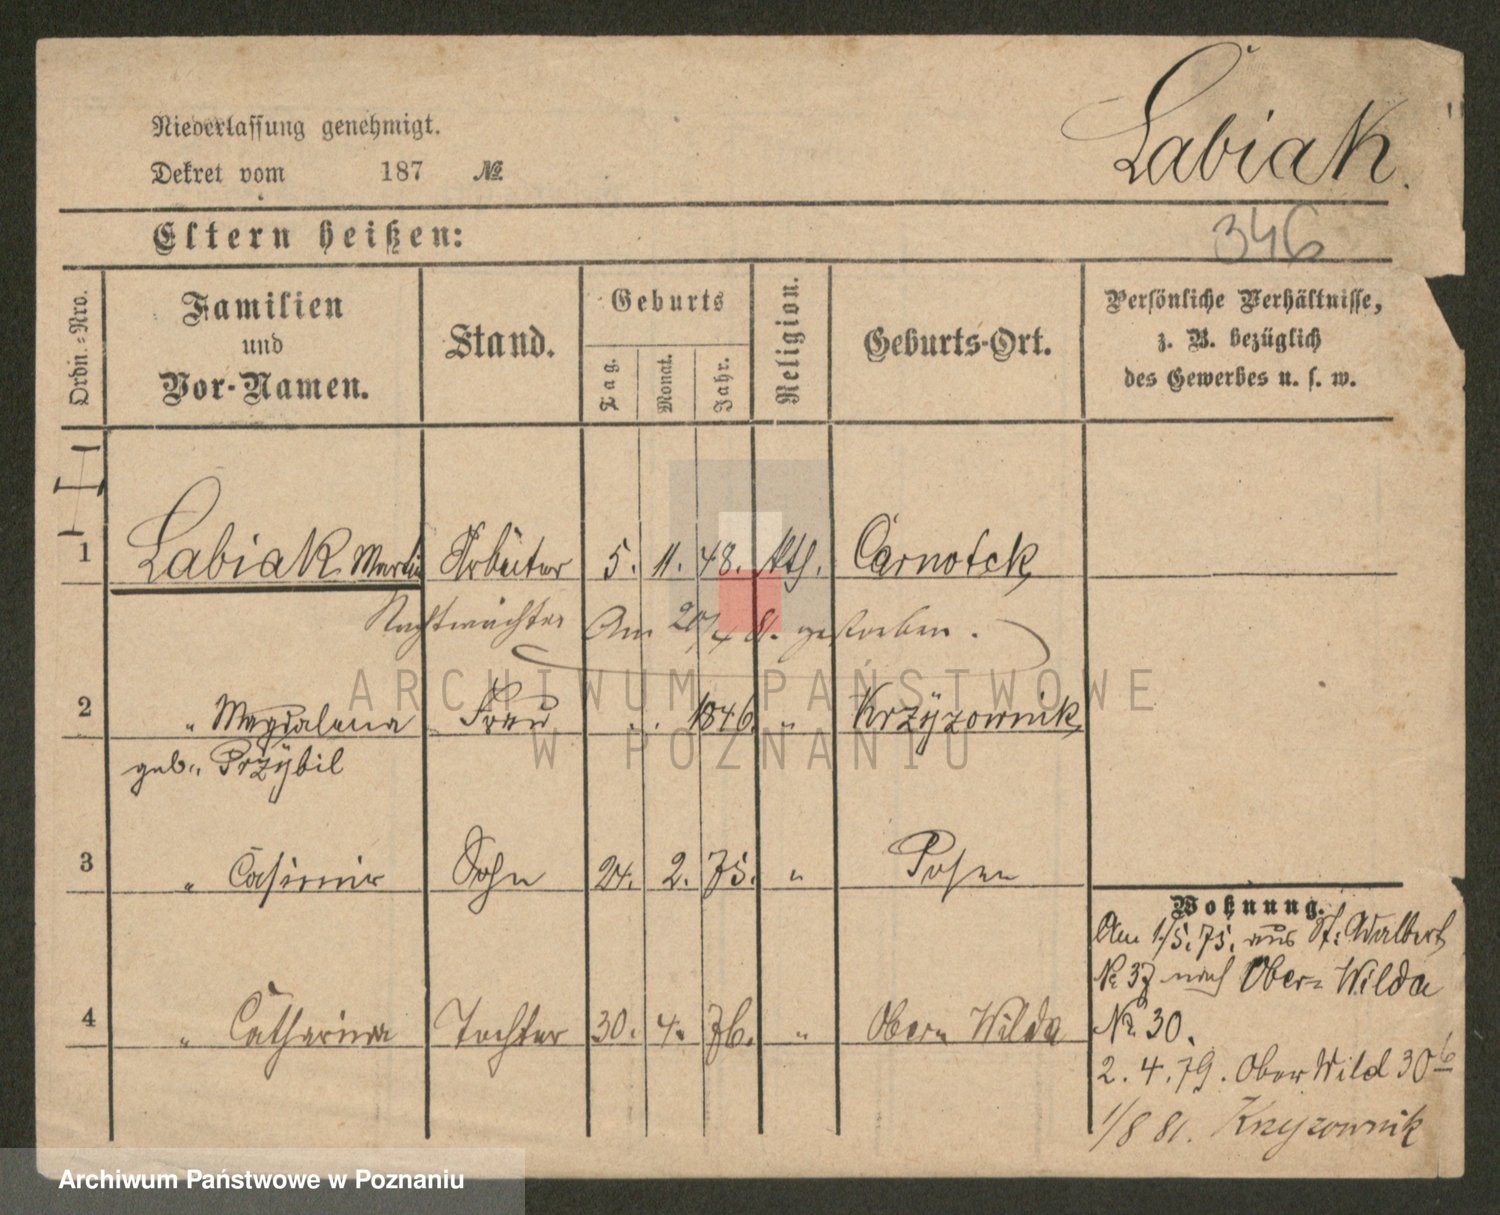 Labiak.
Niederlassung genehmigt.
Dekret vom 187 №
346
Eltern heißen:
Ordn.-Nro.
Familien
und
Vor-Namen.
Stand.
Geburts
Tag.
Monat.
Jahr.
Religion.
Geburts-Ort.
Persönliche Verhältnisse,
z. B. bezüglich
des Gewerbes u. s. w.
1 Labiak Martin Arbeiter 5. 11. 48. kth. Czarnotek
Nachtwächter Am 20/4 81. gestorben.
2 " Magdalena Frau . . 1846. " Krzyzownik
geb. Przybil
3 " Casimir Sohn 24. 2. 75. " Posen
4 " Catharina Tochter 30. 4. 76. " Ober Wilda
Wohnung.
Am 1/5. 75. aus St: Adalbert
№ 37 nach Ober-Wilda
№ 30.
2. 4. 79. Ober Wild 30 b
1/8 81. Krzyzownik
ARCHIWUM PAŃSTWOWE
W POZNANIU
Archiwum Państwowe w Poznaniu